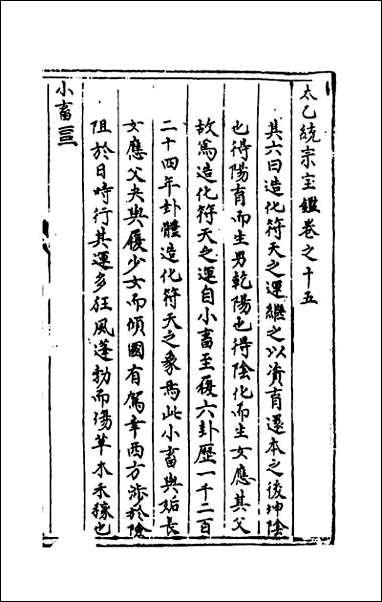 太乙統宗宝鑑卷之十五
其六曰造化符天之運継之以資育還本之後坤陰
也得陽育而生男乾陽也得陰化而生女應其父
故為造化符天之運自小畜至復六卦歴一千二百
二十四年卦體造化符天之象焉此小畜與姤長
女應父夫與履少女而傾國有駕幸西方涉於險
阻於日時行其運多狂風蓬勃而傷草木禾稼也
小畜